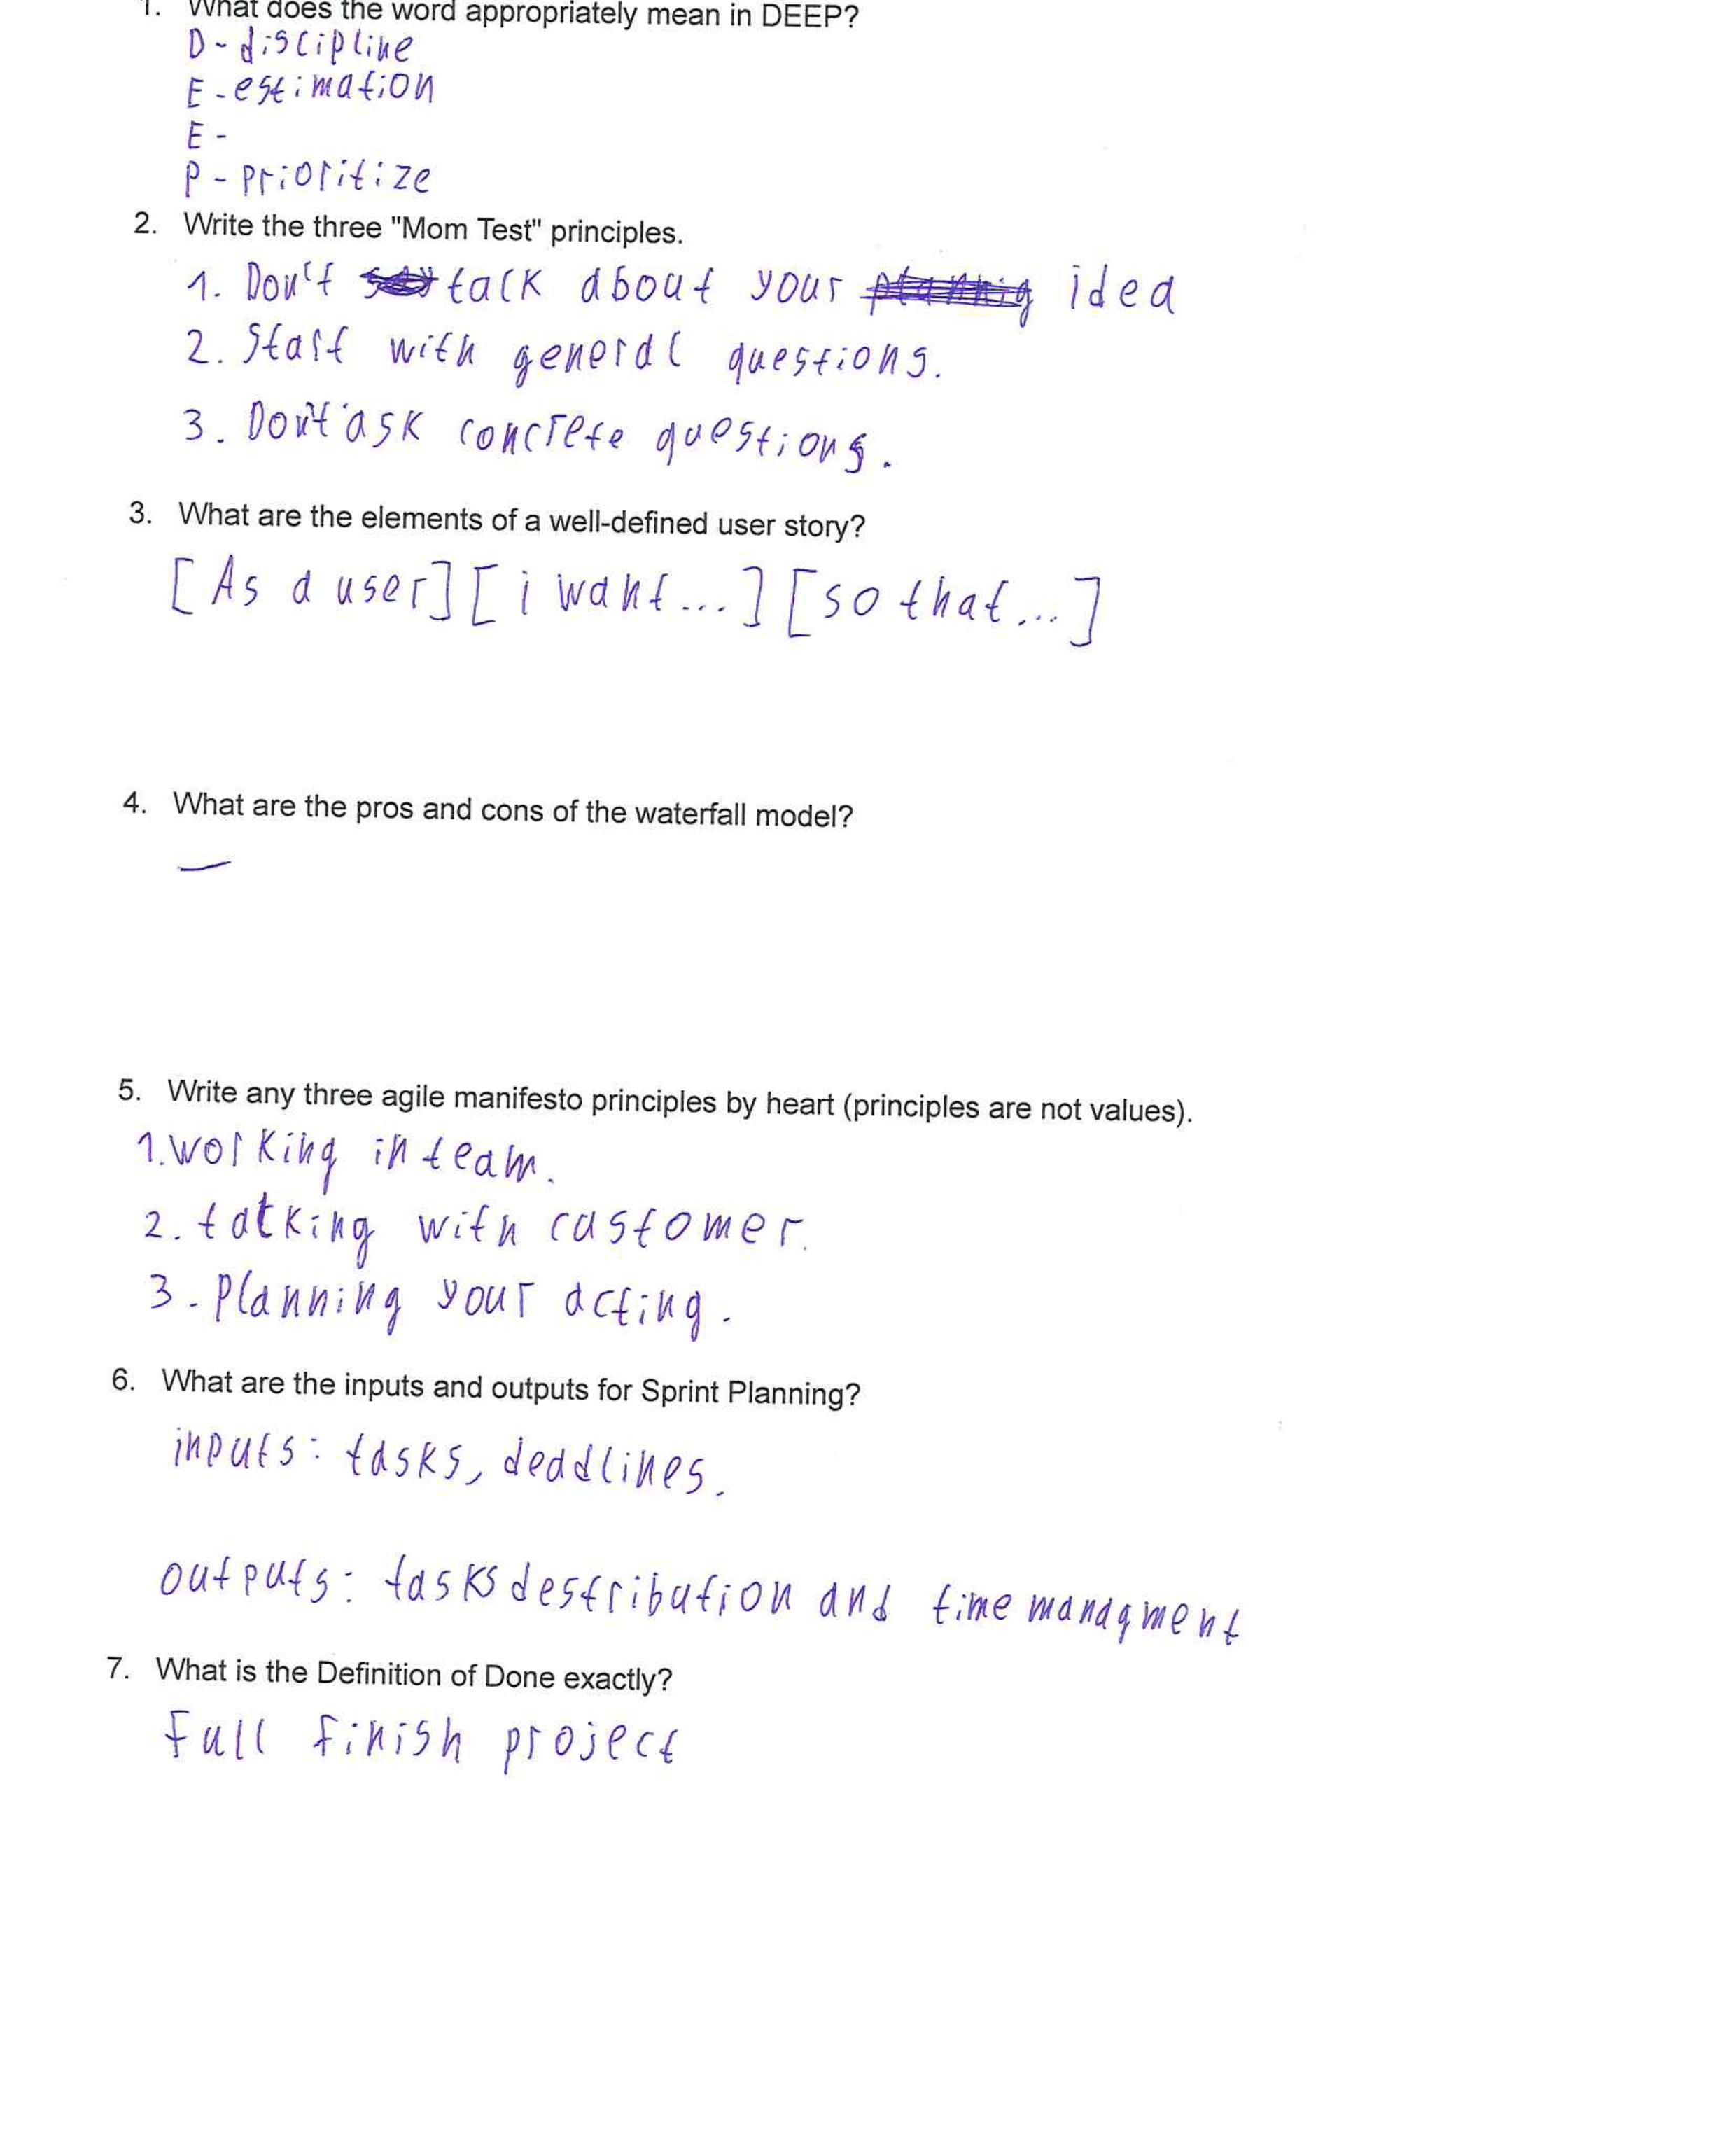 1. What does the word appropriately mean in DEEP?
D - discipline
E - estimation
E -
P - prioritize
2. Write the three "Mom Test" principles.
1. Don't talk about your idea
2. Start with general questions.
3. Don't ask concrete questions.
3. What are the elements of a well-defined user story?
[As a user] [i want...] [so that...]
4. What are the pros and cons of the waterfall model?
—
5. Write any three agile manifesto principles by heart (principles are not values).
1. working in team.
2. talking with customer.
3. Planning your acting.
6. What are the inputs and outputs for Sprint Planning?
inputs: tasks, deadlines.
outputs: tasks destribution and time managment
7. What is the Definition of Done exactly?
Full finish project